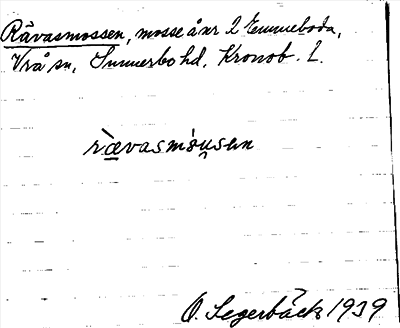 Rävasmossen, mosse å nr 2 Emmeboda,
Vrå sn, Sunnerbo hd, Kronob. l.
rævasmousen
O. Segerbäck 1939